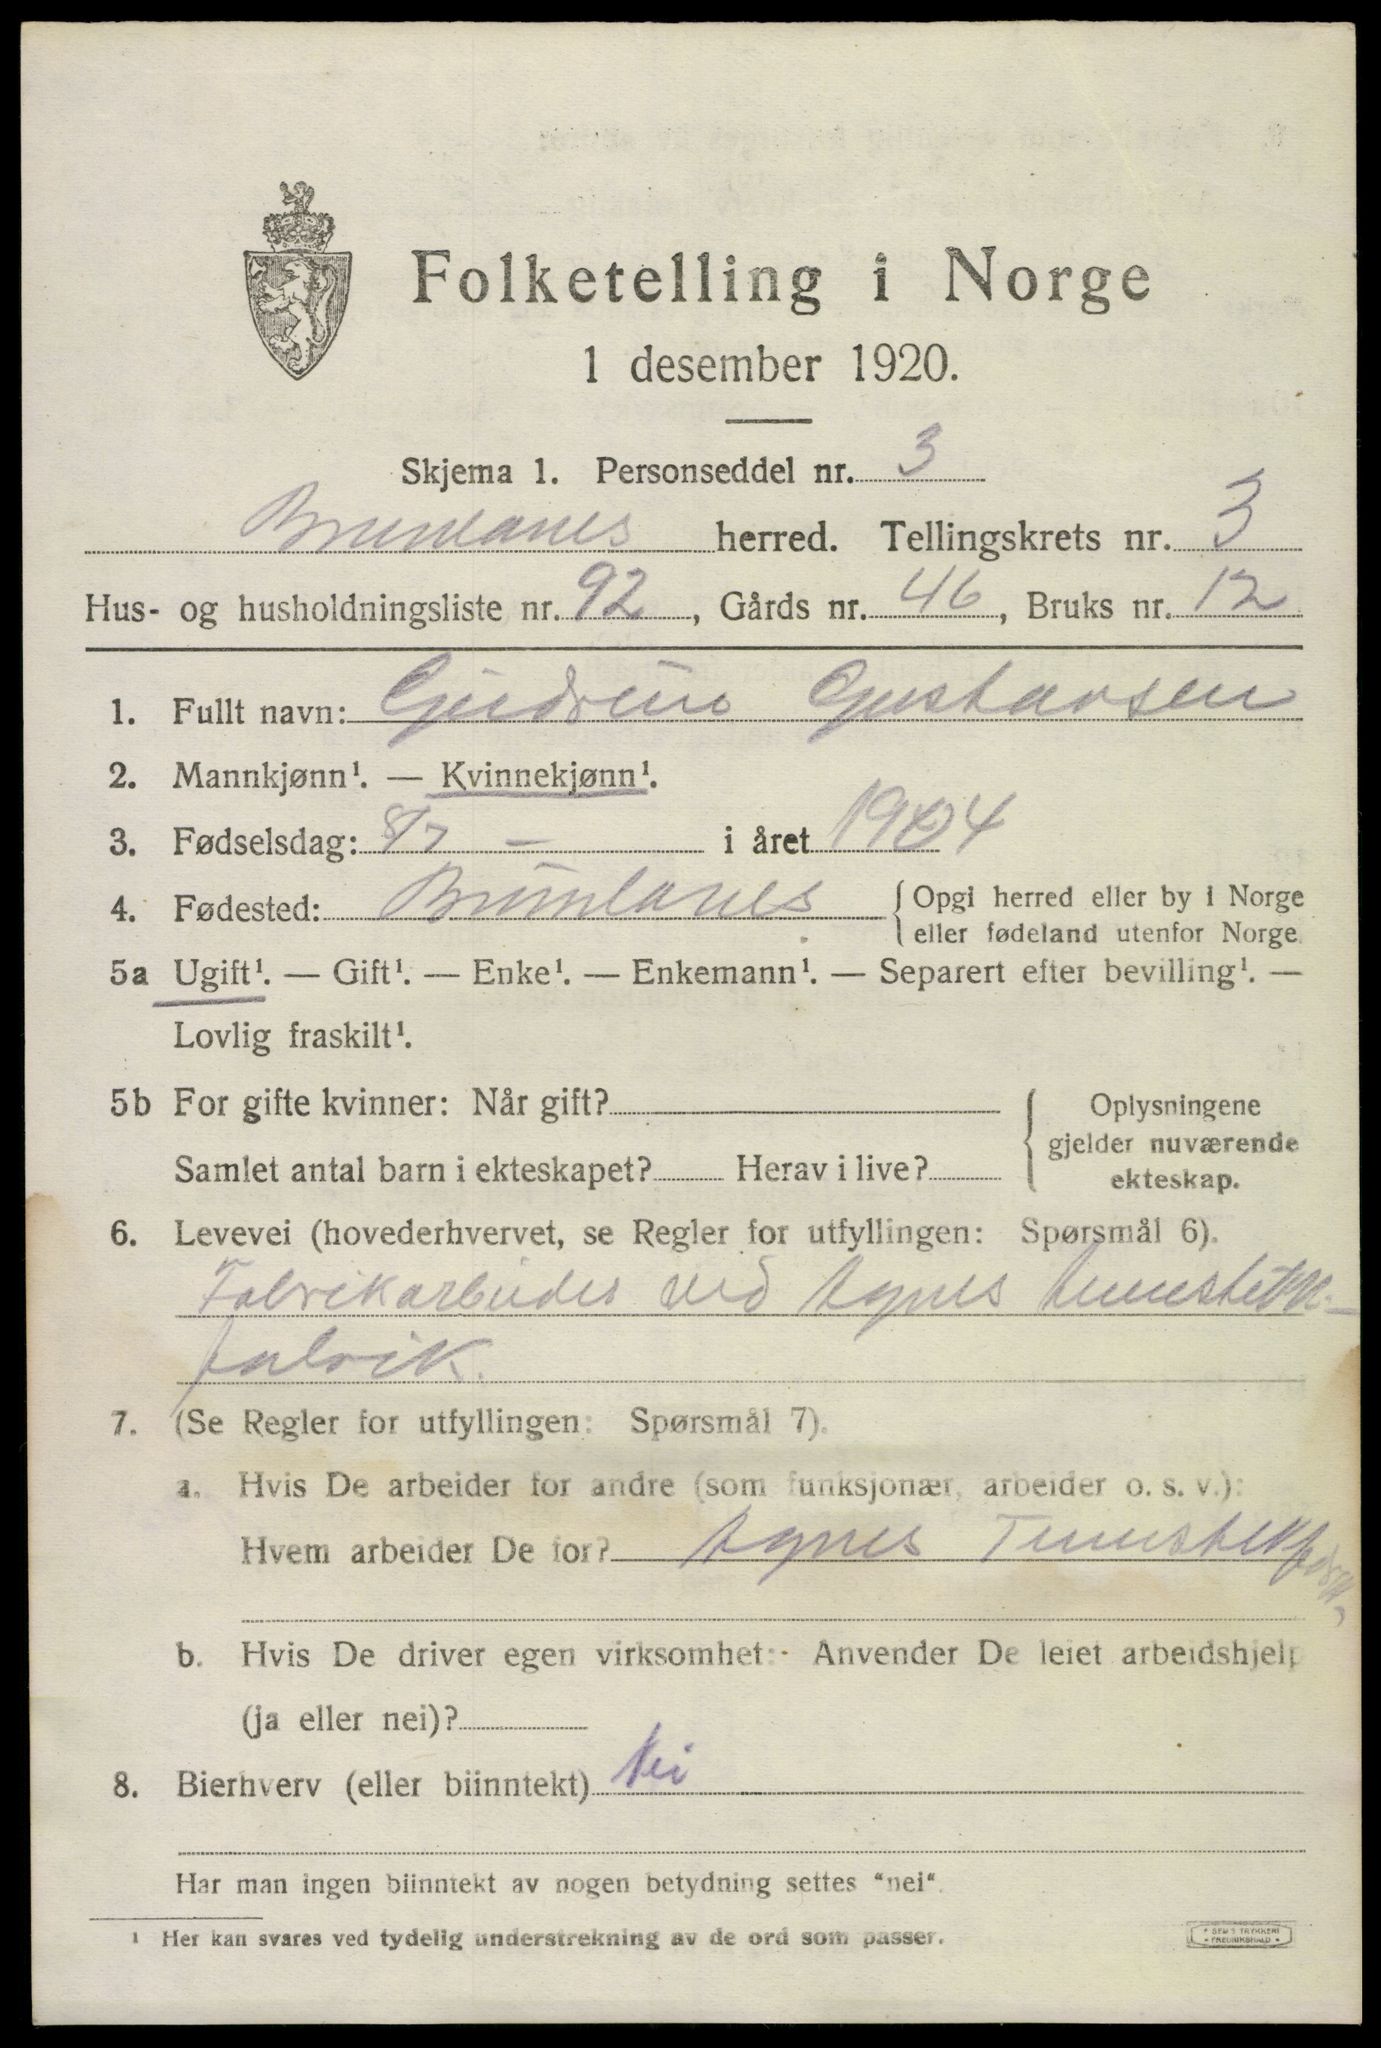 Folketelling i Norge
1 desember 1920.
Skjema 1. Personseddel nr. 3
Brunlanes herred. Tellingskrets nr. 3
Hus- og husholdningsliste nr. 92, Gårds nr. 46, Bruks nr. 12
1. Fullt navn: Gudrun Gustavsen
2. Mannkjønn¹. — Kvinnekjønn¹.
3. Fødselsdag: 8/7 - i året 1904
4. Fødested: Brunlanes { Opgi herred eller by i Norge
eller fødeland utenfor Norge.
5a Ugift¹. — Gift¹. — Enke¹. — Enkemann¹. — Separert efter bevilling¹. —
Lovlig fraskilt¹.
5b For gifte kvinner: Når gift? { Oplysningene
gjelder nuværende
Samlet antal barn i ekteskapet? Herav i live? ekteskap.
6. Levevei (hovederhvervet, se Regler for utfyllingen: Spørsmål 6).
Fabrikarbeider ved Agnes
fabrik.
7. (Se Regler for utfyllingen: Spørsmål 7).
a. Hvis De arbeider for andre (som funksjonær, arbeider o. s. v.):
Hvem arbeider De for? Agnes
b. Hvis De driver egen virksomhet: Anvender De leiet arbeidshjelp
(ja eller nei)?
8. Bierhverv (eller biinntekt) Nei
Har man ingen biinntekt av nogen betydning settes "nei".
¹ Her kan svares ved tydelig understrekning av de ord som passer.
SEM'S TRYKKERI
FREDRIKSHALD